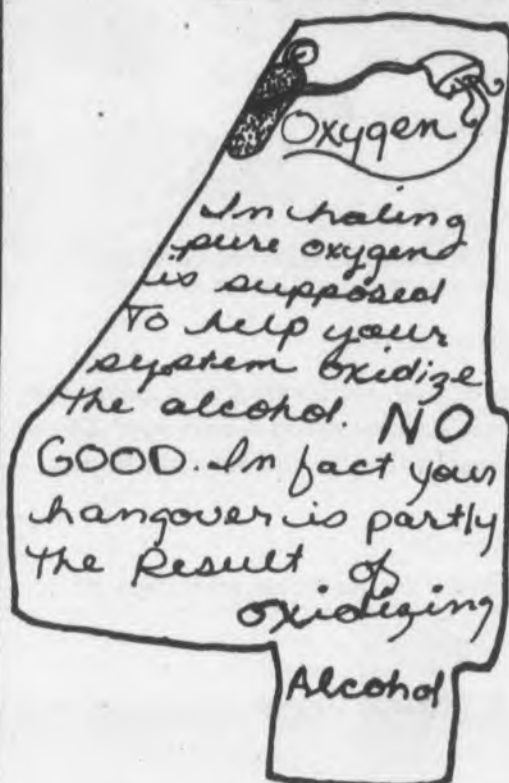 Oxygen
Inhaling
pure oxygen
is supposed
To help your
system oxidize
the alcohol. NO
GOOD. In fact your
hangover is partly
the Result of
oxidizing
Alcohol